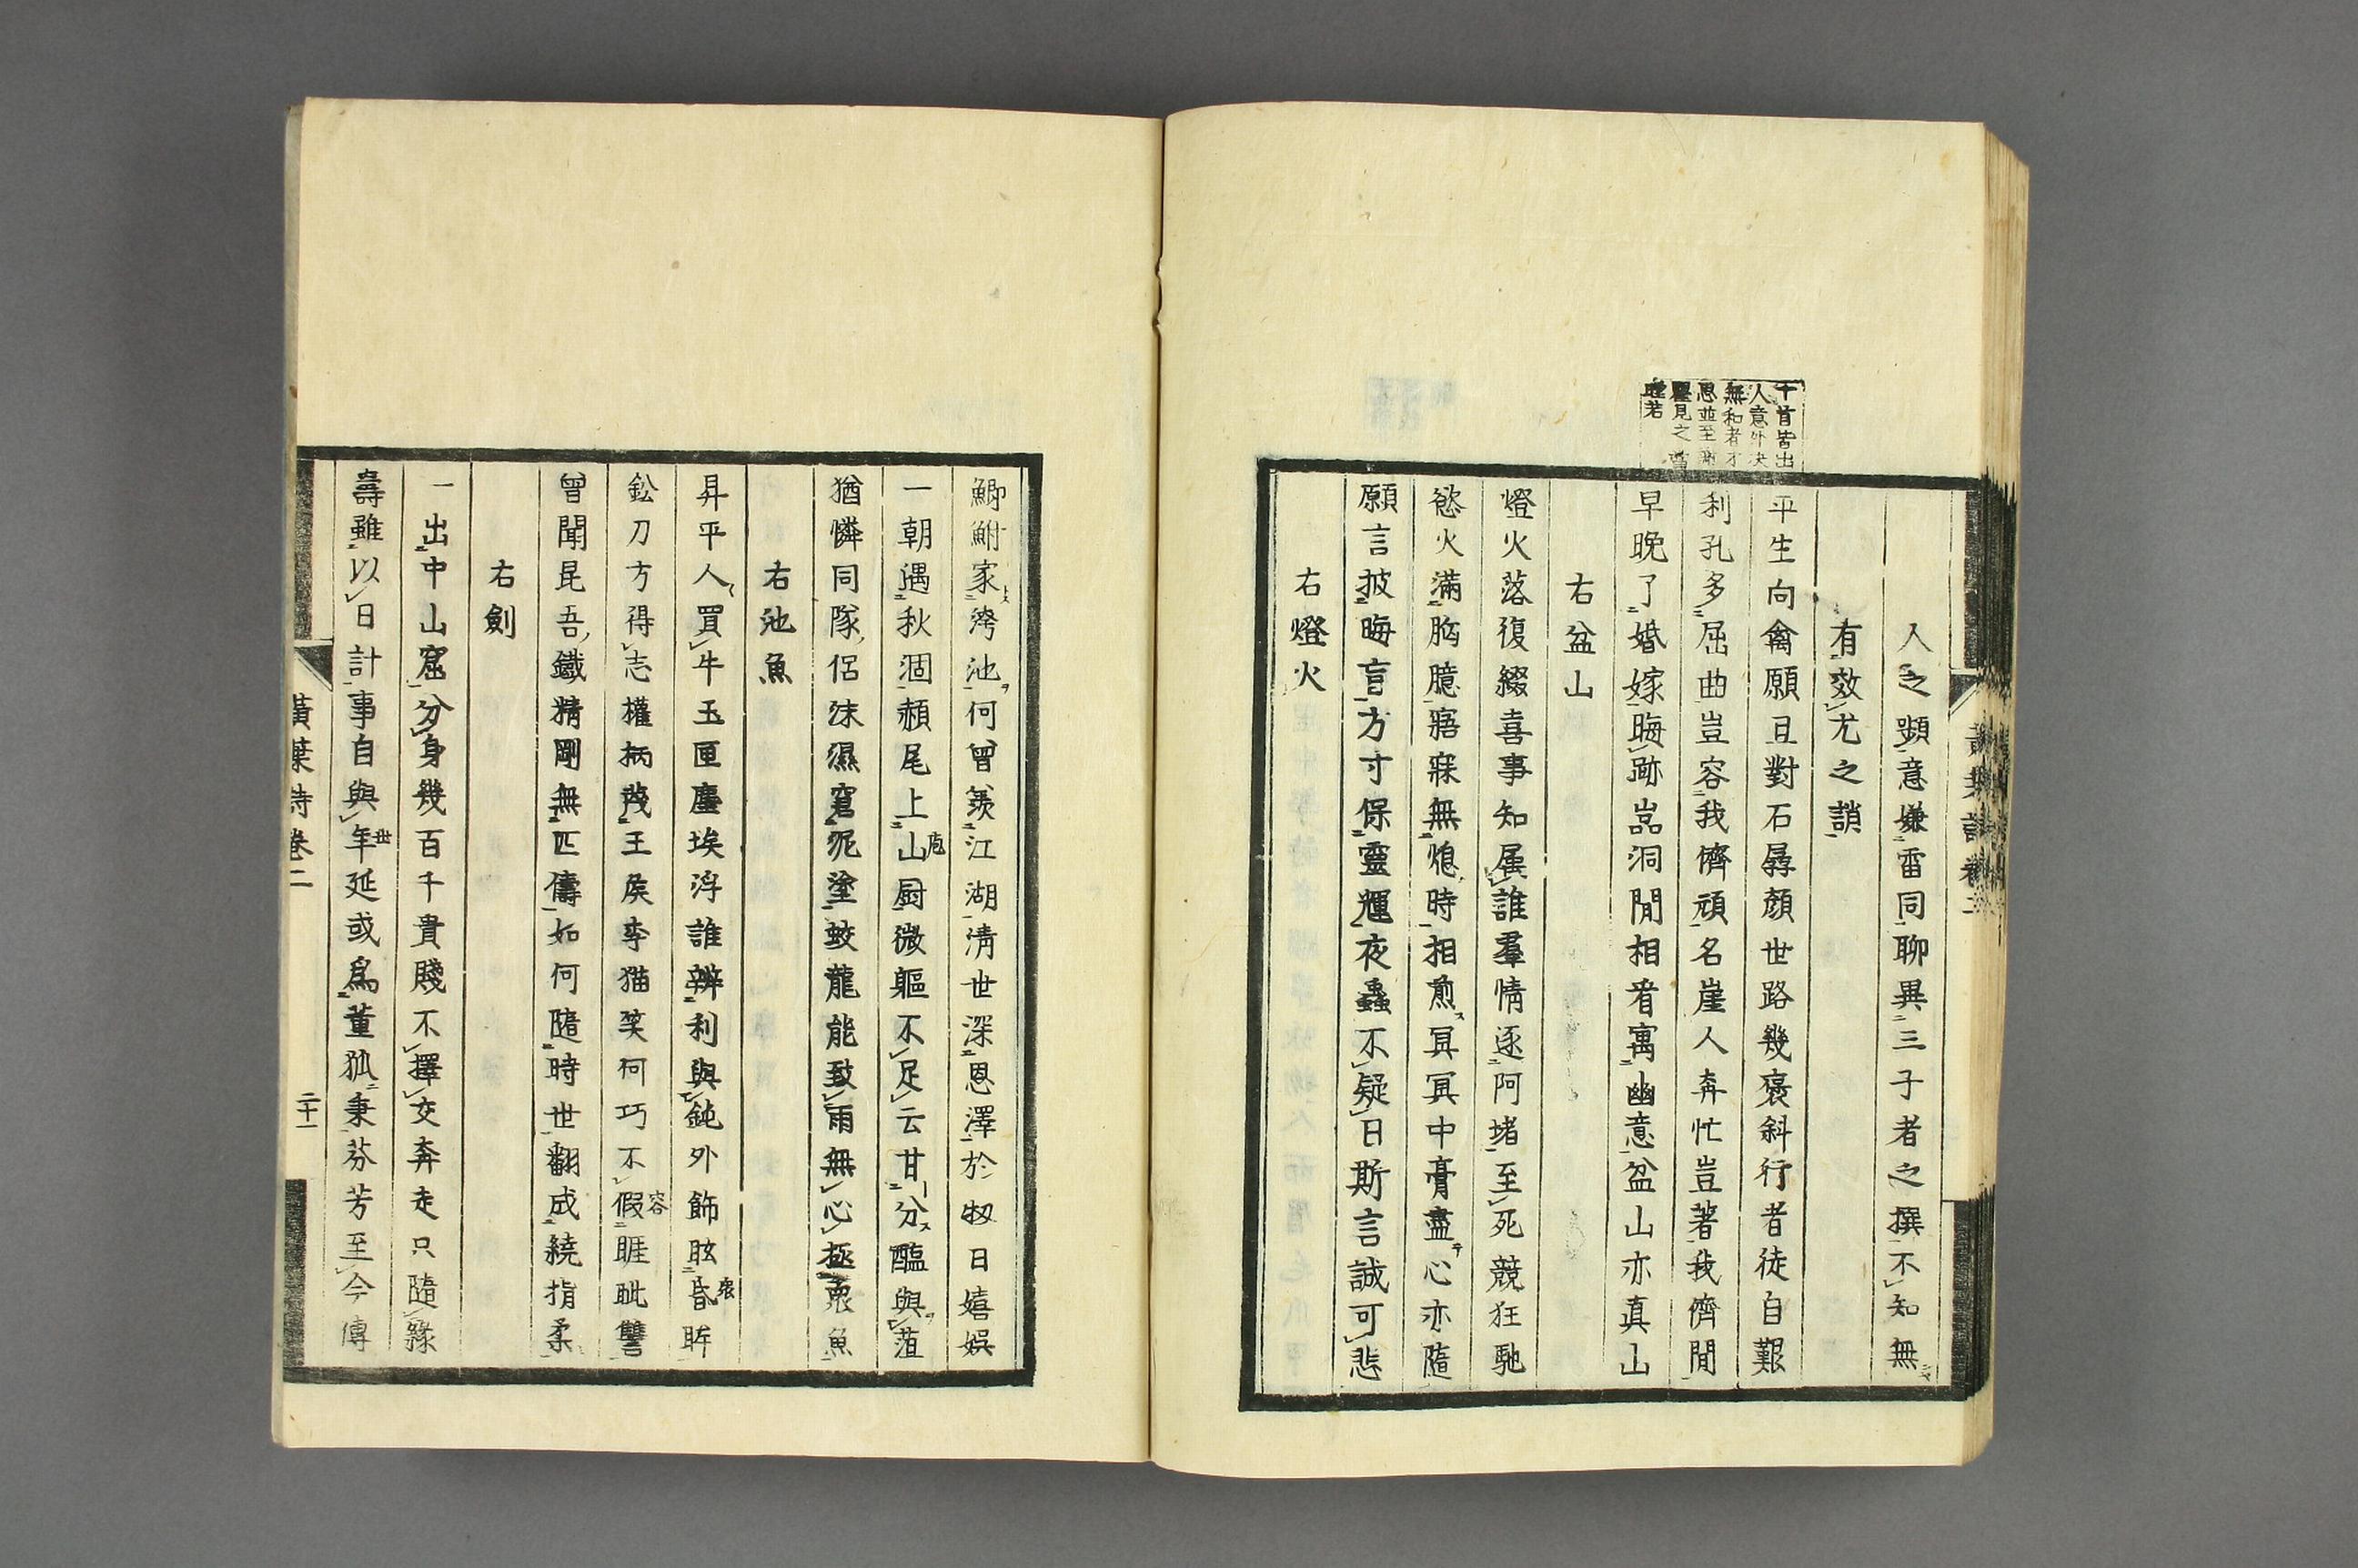 十首皆出
人意外決
無和者才
思並至
見之當
若
人之顰意嫌雷同聊異三子者之撰不知無
有效尤之誚
平生向禽願且對石孱顏世路幾褒斜行者徒自艱
利孔多屈曲豈容我儕頑名崖人奔忙豈著我儕閒
早晚了婚嫁晦跡嵓洞閒相看寓幽意盆山亦真山
右盆山
燈火落復綴喜事知属誰羣情逐阿堵至死競狂馳
慾火滿胸臆寤寐無熄時相煎冥冥中膏盡心亦隨
願言披晦盲方寸保靈輝夜蟲不疑日斯言誠可悲
右燈火
鯽鮒家洿池何曾羨江湖清世深恩澤於牣日嬉娯
一朝遇秋涸赬尾上山庖厨微軀不足云甘分醢與菹
猶憐同隊侶沫濕窘泥塗蛟龍能致雨無心極衆魚
右池魚
昇平人買牛玉匣塵埃浮誰辨利與鈍外飾眩昏衆眸
鈆刀方得志權柄茂王侯李猫笑何巧不假容睚眦讐
曾聞昆吾鐵精剛無匹儔如何隨時世翻成繞指柔
右劍
一出中山窟分身幾百千貴賤不擇交奔走只隨緣
壽雖以日計事自與年世延或爲董狐秉芬芳至今傳
黃葉詩卷二
二十一